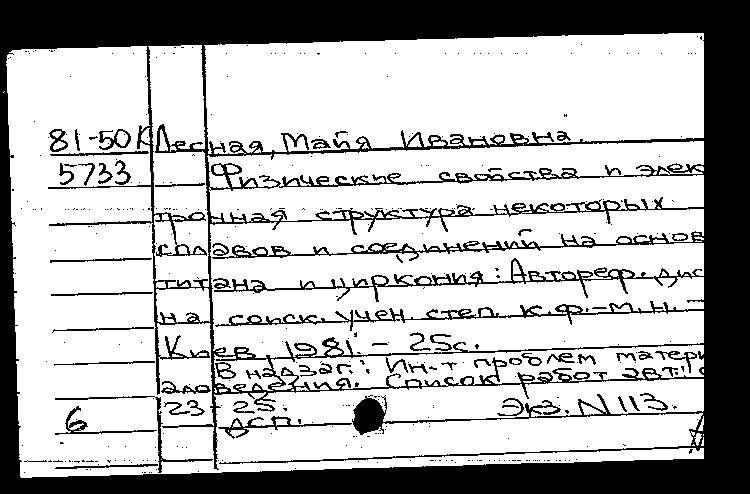 81-50К Лесная, Майя Ивановна.
5733 Физические свойства и элек
тронная структура некоторых
сплавов и соединений на основ
титана и циркония: Автореф. дис
на соиск. учен. степ. к.ф.-м.н. -
Киев, 1981. - 25с.
В надзаг.: Ин-т проблем матери
аловедения. Список работ авт.:
23-25.
6 ДСП. Экз. N 113.